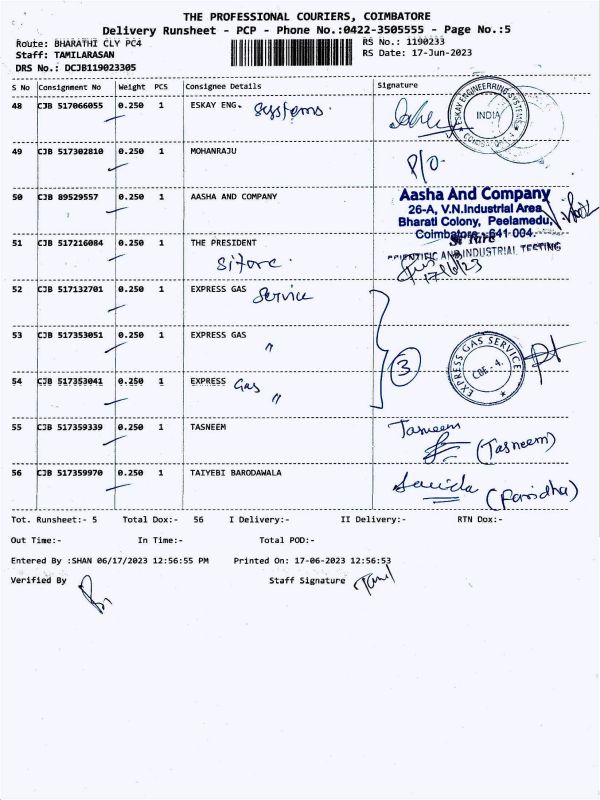 THE PROFESSIONAL COURIERS, COIMBATORE
Delivery Runsheet - PCP - Phone No.:0422-3505555 - Page No.:5
Route: BHARATHI CLY PC4 RS No.: 1190233
Staff: TAMILARASAN RS Date: 17-Jun-2023
DRS No.: DCJB119023305
S No Consignment No Weight PCS Consignee Details Signature
48 CJB 517066055 0.250 1 ESKAY ENG. Systems.
ESKAY ENGINEERING SYSTEMS
INDIA
49 CJB 517302810 0.250 1 MOHANRAJU P/O
50 CJB 89529557 0.250 1 AASHA AND COMPANY
Aasha And Company
26-A, V.N.Industrial Area,
Bharati Colony, Peelamedu,
Coimbatore - 641 004.
51 CJB 517216084 0.250 1 THE PRESIDENT
Sitarc.
SCIENTIFIC AND INDUSTRIAL TESTING
17/6/23
52 CJB 517132701 0.250 1 EXPRESS GAS Service
53 CJB 517353051 0.250 1 EXPRESS GAS "
3
EXPRESS GAS SERVICE
CBE-4.
54 CJB 517353041 0.250 1 EXPRESS Gas
"
55 CJB 517359339 0.250 1 TASNEEM Tasneem
(Tasneem)
56 CJB 517359970 0.250 1 TAIYEBI BARODAWALA
(Faridha)
Tot. Runsheet:- 5 Total Dox:- 56 I Delivery:- II Delivery:- RTN Dox:-
Out Time:- In Time:- Total POD:-
Entered By :SHAN 06/17/2023 12:56:55 PM Printed On: 17-06-2023 12:56:53
Verified By Staff Signature Tamil